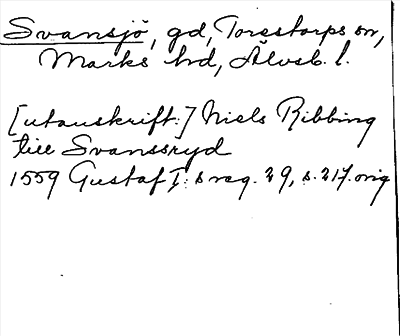 Svansjö, gd, Torestorps sn,
Marks hd, Älvsb. l.
[utanskrift:] Niels Ribbing
till Svanssryd
1559 Gustaf I: s reg. 29, s. 217. orig